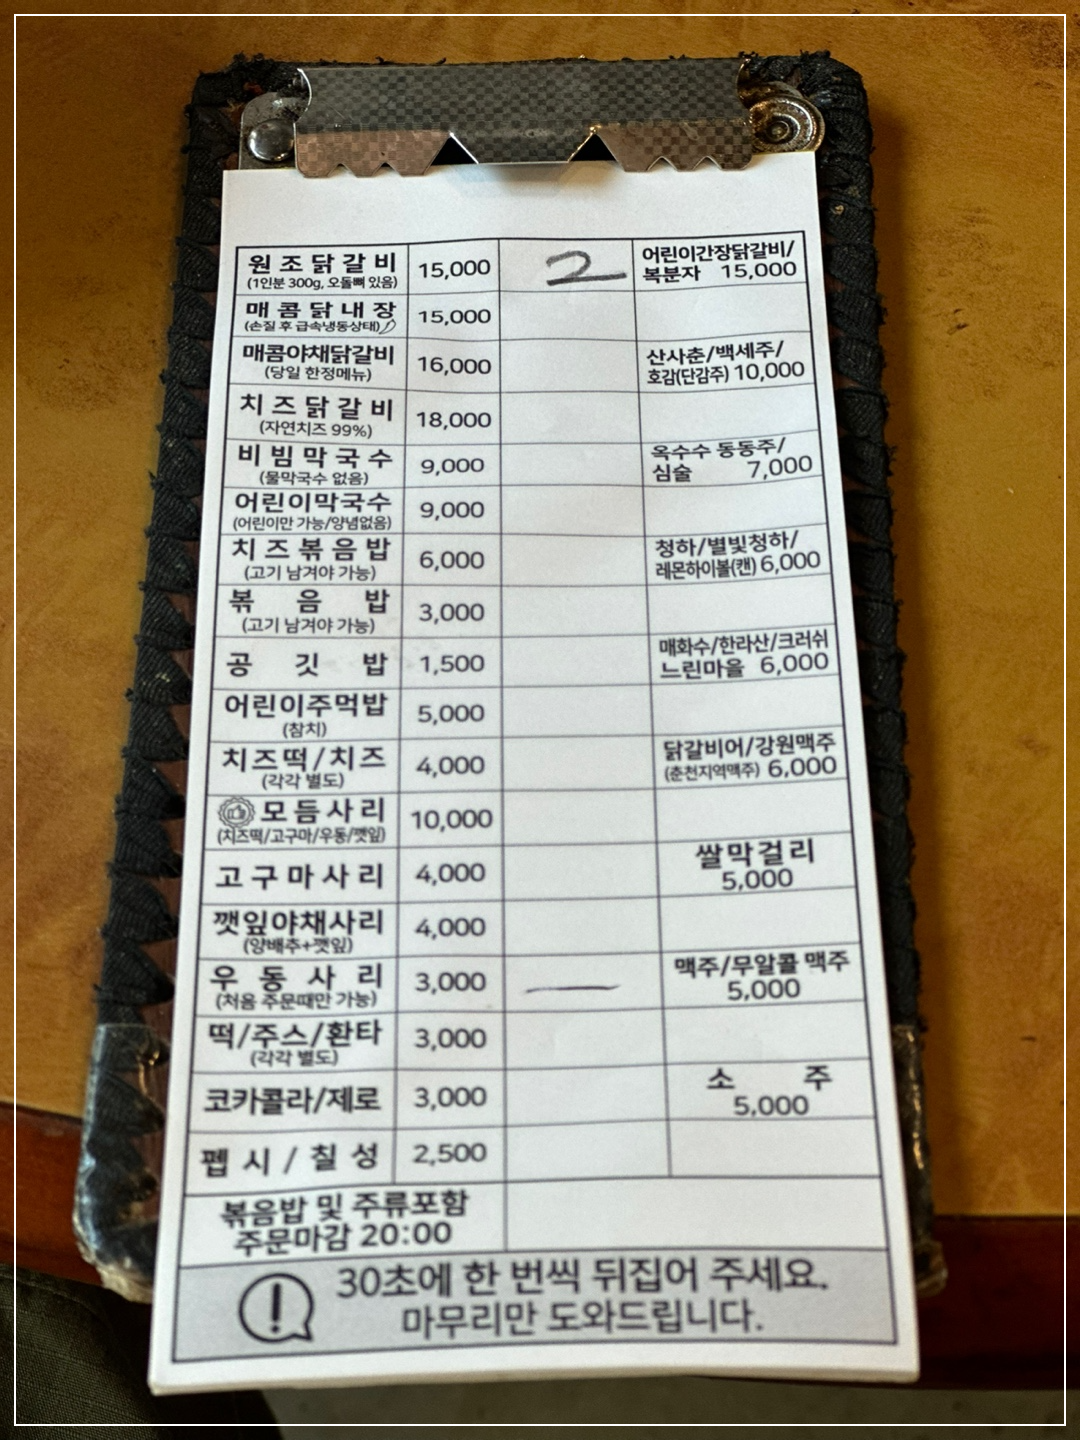 원조닭갈비 15,000 2 어린이간장닭갈비/
(1인분 300g, 오돌뼈 있음) 복분자 15,000
매콤닭내장 15,000
(손질 후 급속냉동상태)
매콤야채닭갈비 16,000 산사춘/백세주/
(당일 한정메뉴) 호감(단감주) 10,000
치즈닭갈비 18,000
(자연치즈 99%)
비빔막국수 9,000 옥수수 동동주/
(물막국수 없음) 심술 7,000
어린이막국수 9,000
(어린이만 가능/양념없음)
치즈볶음밥 6,000 청하/별빛청하/
(고기 남겨야 가능) 레몬하이볼(캔) 6,000
볶음밥 3,000
(고기 남겨야 가능)
공깃밥 1,500 매화수/한라산/크러쉬
느린마을 6,000
어린이주먹밥 5,000
(참치)
치즈떡/치즈 4,000 닭갈비어/강원맥주
(각각 별도) (춘천지역맥주) 6,000
모듬사리 10,000
(치즈떡/고구마/우동/깻잎)
고구마사리 4,000 쌀막걸리
5,000
깻잎야채사리 4,000
(양배추+깻잎)
우동사리 3,000 맥주/무알콜 맥주
(처음 주문때만 가능) 5,000
떡/주스/환타 3,000
(각각 별도)
코카콜라/제로 3,000 소주
5,000
펩시/칠성 2,500
볶음밥 및 주류포함
주문마감 20:00
30초에 한 번씩 뒤집어 주세요.
마무리만 도와드립니다.